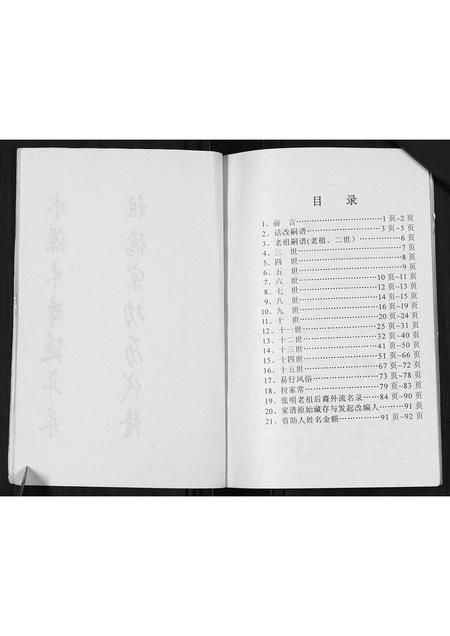 目 录
1、前 言……………………………1 页~2 页
2、话改嗣谱…………………………3 页~5 页
3、老祖嗣谱(老祖、二世)……………6 页
4、三 世……………………………7 页
5、四 世……………………………8 页
6、五 世……………………………9 页
7、六 世……………………………10 页~11 页
8、七 世……………………………12 页~13 页
9、八 世……………………………14 页~15 页
10、九 世……………………………16 页~19 页
11、十 世……………………………20 页~24 页
12、十一世……………………………25 页~31 页
13、十二世……………………………32 页~40 页
14、十三世……………………………41 页~50 页
15、十四世……………………………51 页~66 页
16、十五世……………………………67 页~72 页
17、易行风俗…………………………73 页~78 页
18、拉家常……………………………79 页~83 页
19、张明老祖后裔外流名录……84 页~90 页
20、家谱原始藏存与发起改编人…………91 页
21、资助人姓名金额…………91 页~92 页